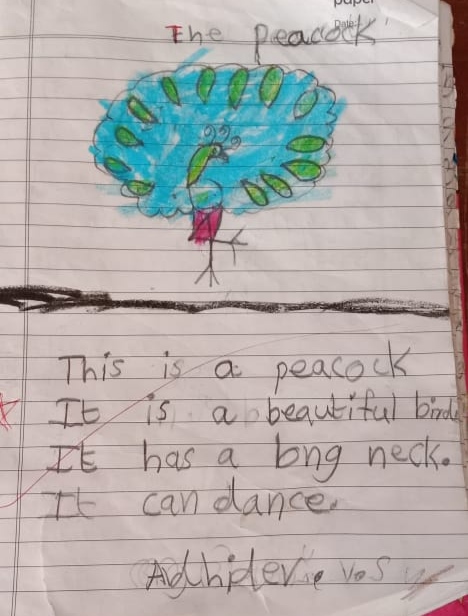 paper
Date:
The peacock
This is a peacock
It is a beautiful bird
It has a long neck.
It can dance.